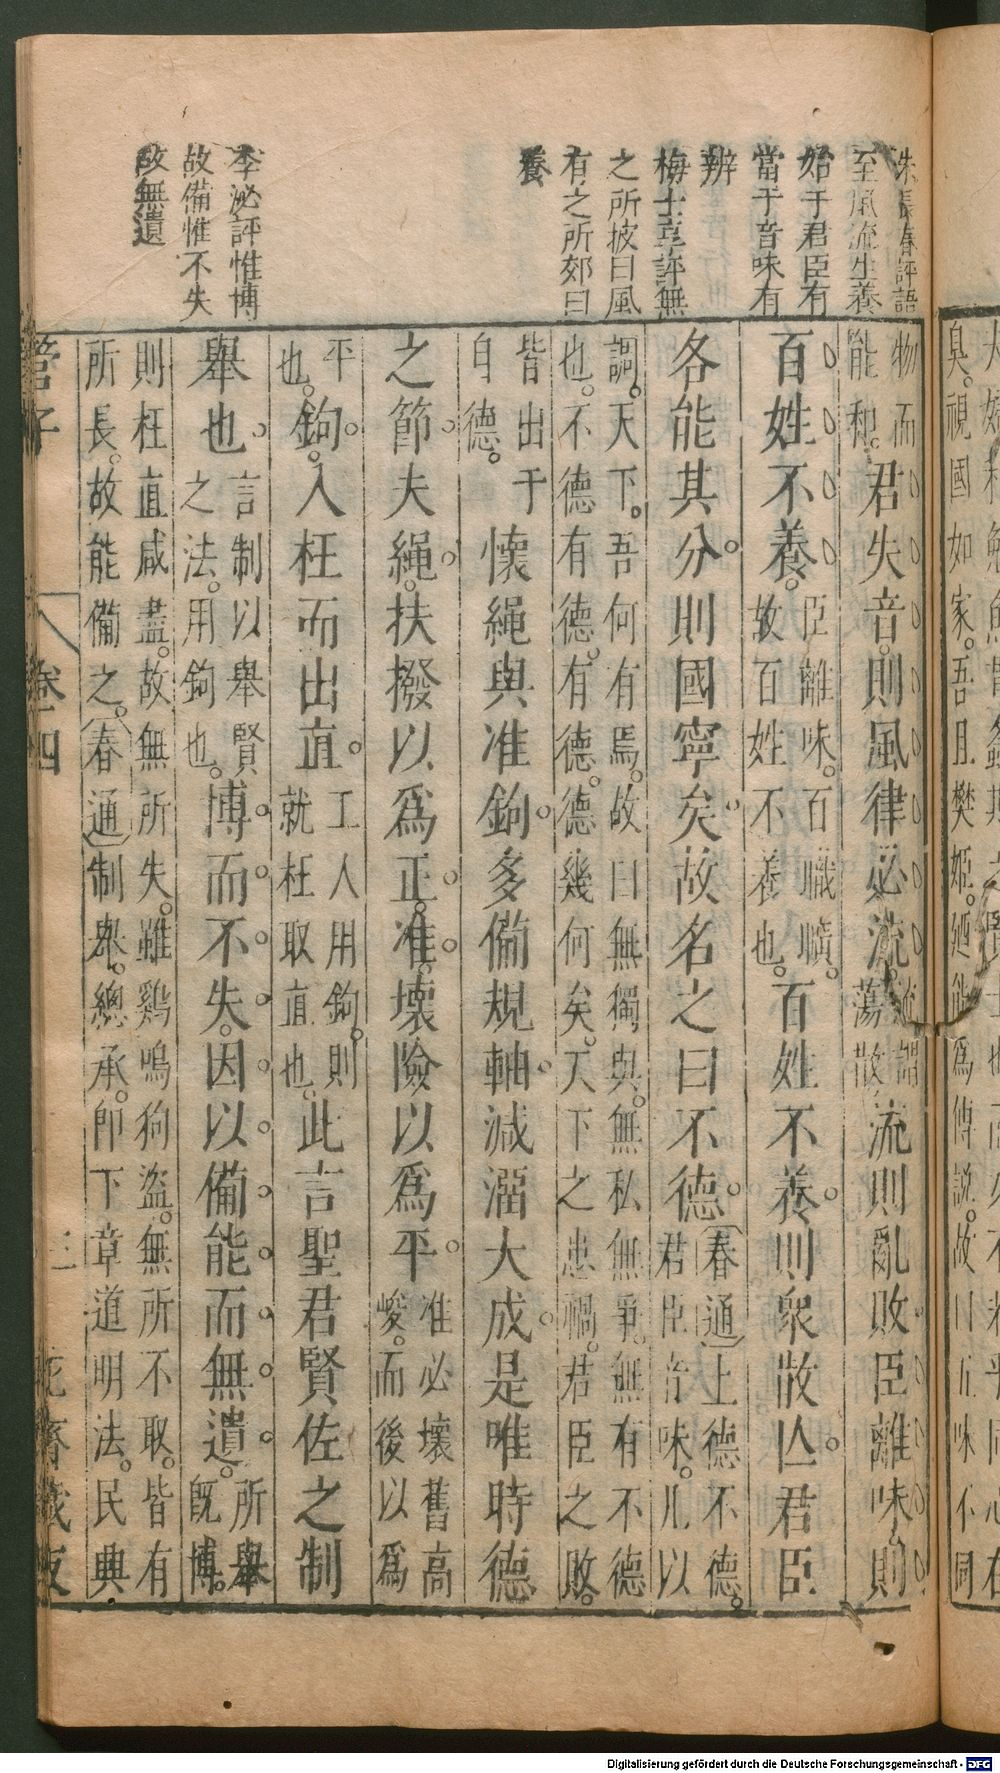 朱長春評語
至風流生養
始于君臣有
當于音味有
辨
梅士享評無
之所披曰風
有之所郊曰
養
李泌評惟博
故備惟不失
故無遺
物而
能和。
君失音則風律必流。
流謂
蕩散
流則亂敗臣離味則
百姓不養。
臣離味。百職曠。
故百姓不養也。
百姓不養則衆散亾君臣
各能其分則國寧矣故名之曰不德
春通上德不德。
君臣治味。儿以
調。天下。吾何有焉。故曰無獨與。無私無爭。無有不德
也。不德有德。有德。德幾何矣。天下之患禍。君臣之敗。
皆出于
自德。
懷繩與准鉤多備規軸減溜大成是唯時德
之節夫繩。扶撥以爲正。准。壞險以爲平
准必壞舊高
峻。而後以爲
平
也。
鉤。入枉而出直
工人用鉤。則
就枉取直也。
此言聖君賢佐之制
舉也
言制以舉賢
之法。用鉤也。
博而不失。因以備能而無遺。
所舉
既博。
則枉直咸盡。故無所失。雖鷄鳴狗盜。無所不取。皆有
所長。故能備之。春通制舉。總承。卽下章道明法。民典
管子
卷四
三
花齋藏板
臭。視國如家。吾且樊姬。
爲傅說。故曰五味不同
Digitalisierung gefördert durch die Deutsche Forschungsgemeinschaft - DFG